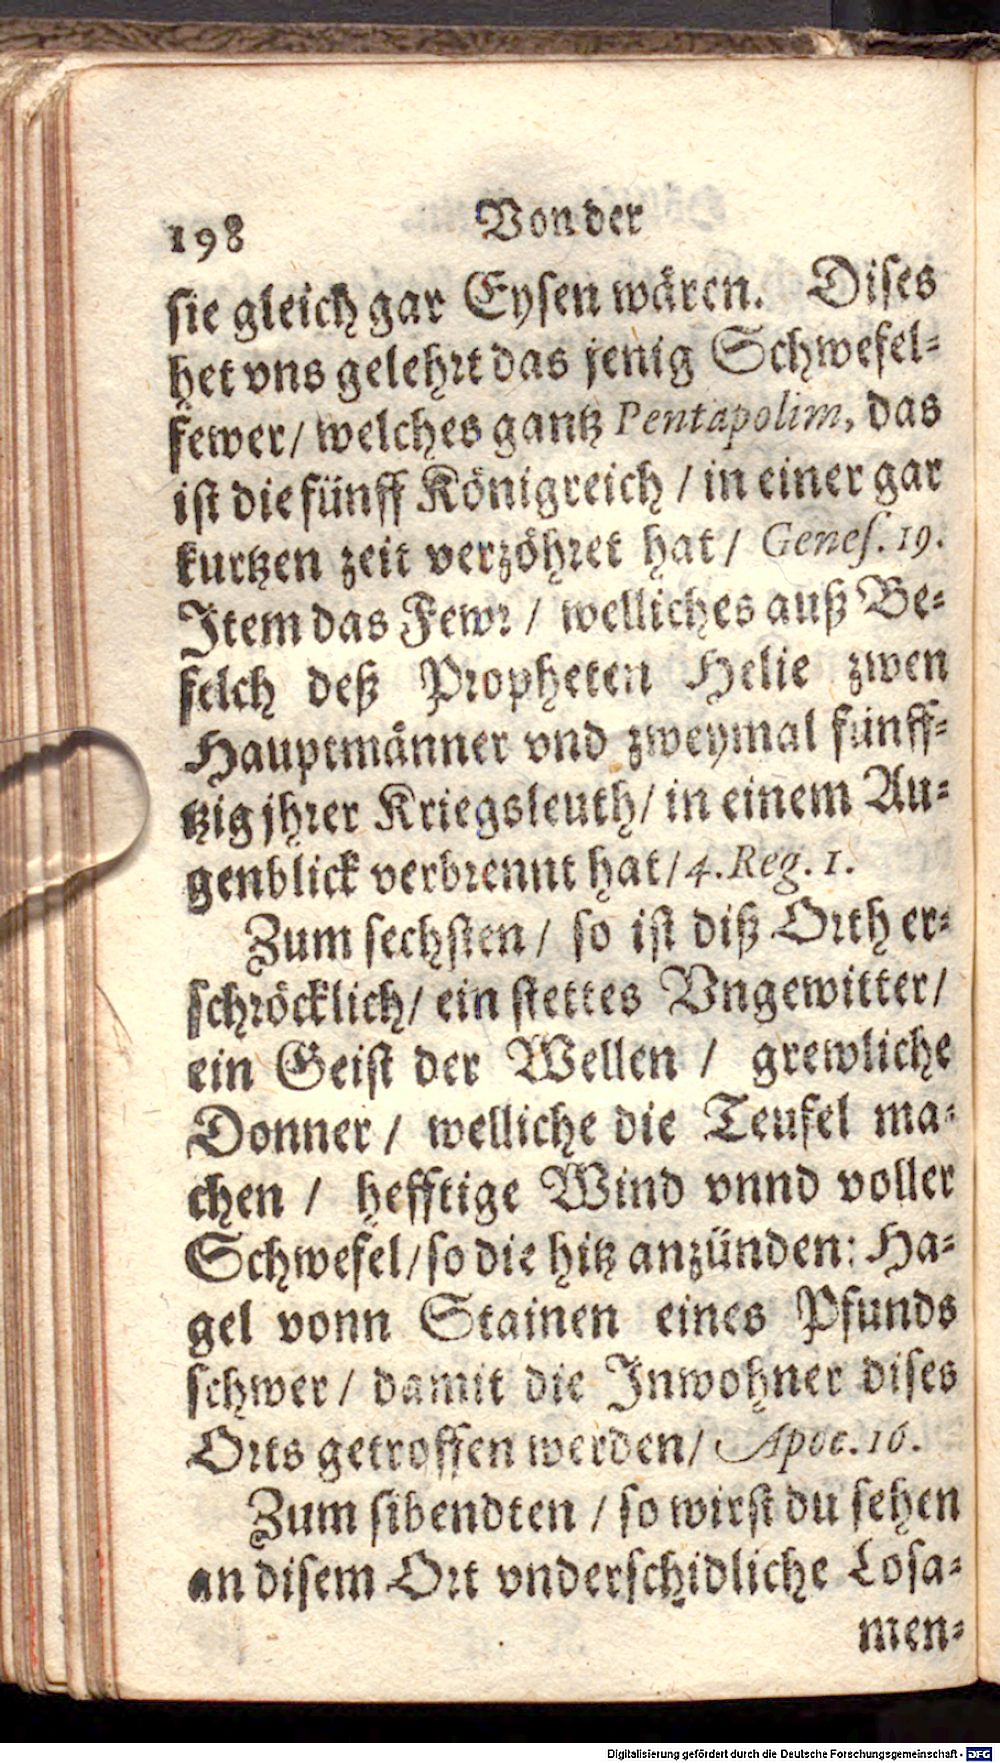 198 Von der
sie gleich gar Eysen wären. Dises
het vns gelehrt das jenig Schwefel-
fewer/ welches gantz Pentapolim, das
ist die fünff Königreich / in einer gar
kurtzen zeit verzöhret hat/ Genes. 19.
Item das Fewr / welliches auß Be-
felch deß Propheten Helie zwen
Hauptmänner vnd zweymal fünff-
tzig jhrer Kriegsleuth/ in einem Au-
genblick verbrennt hat/ 4. Reg. 1.
Zum sechsten / so ist diß Orth er-
schröcklich/ ein stettes Vngewitter/
ein Geist der Wellen / grewliche
Donner / welliche die Teufel ma-
chen / hefftige Wind vnnd voller
Schwefel/ so die hitz anzünden: Ha-
gel vonn Stainen eines Pfunds
schwer / damit die Inwohner dises
Orts getroffen werden/ Apoc. 16.
Zum sibendten / so wirst du sehen
an disem Ort vnderschidliche Losa-
men-
Digitalisierung gefördert durch die Deutsche Forschungsgemeinschaft - DFG